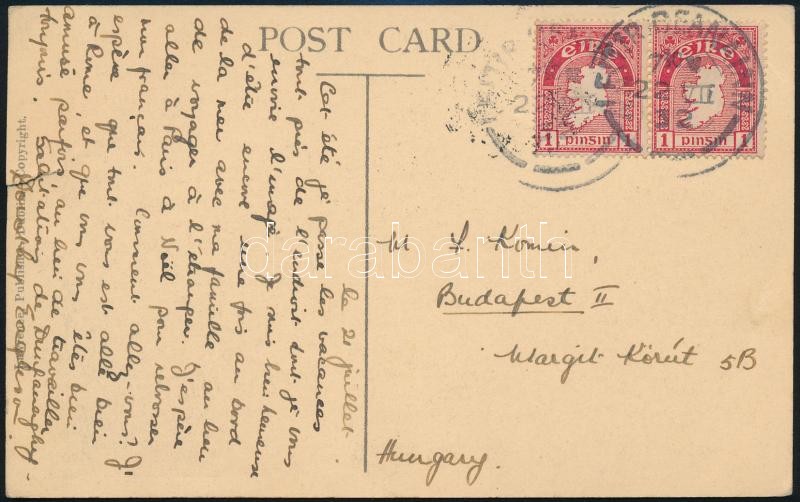 POST CARD
la 21 juillet.
Cet été je passe les vacances
tout près de l'endroit dont je vous
envoie l'image. Je suis bien heureuse
d'être encore une fois au bord
de la mer avec ma famille au lieu
de voyager à l'étranger. J'espère
aller à Paris à Noël pour
mon français. Comment allez-vous? J'
espère que tout vous est allé bien
à Rome et que vous vous êtes bien
amusé parfois au lieu de travailler
toujours. Salutations de
éire
1 pinsin 1
éire
1 pinsin 1
M Komin,
Budapest II
Margit Körút 5B
Hungary.
Copyright.
darabanth